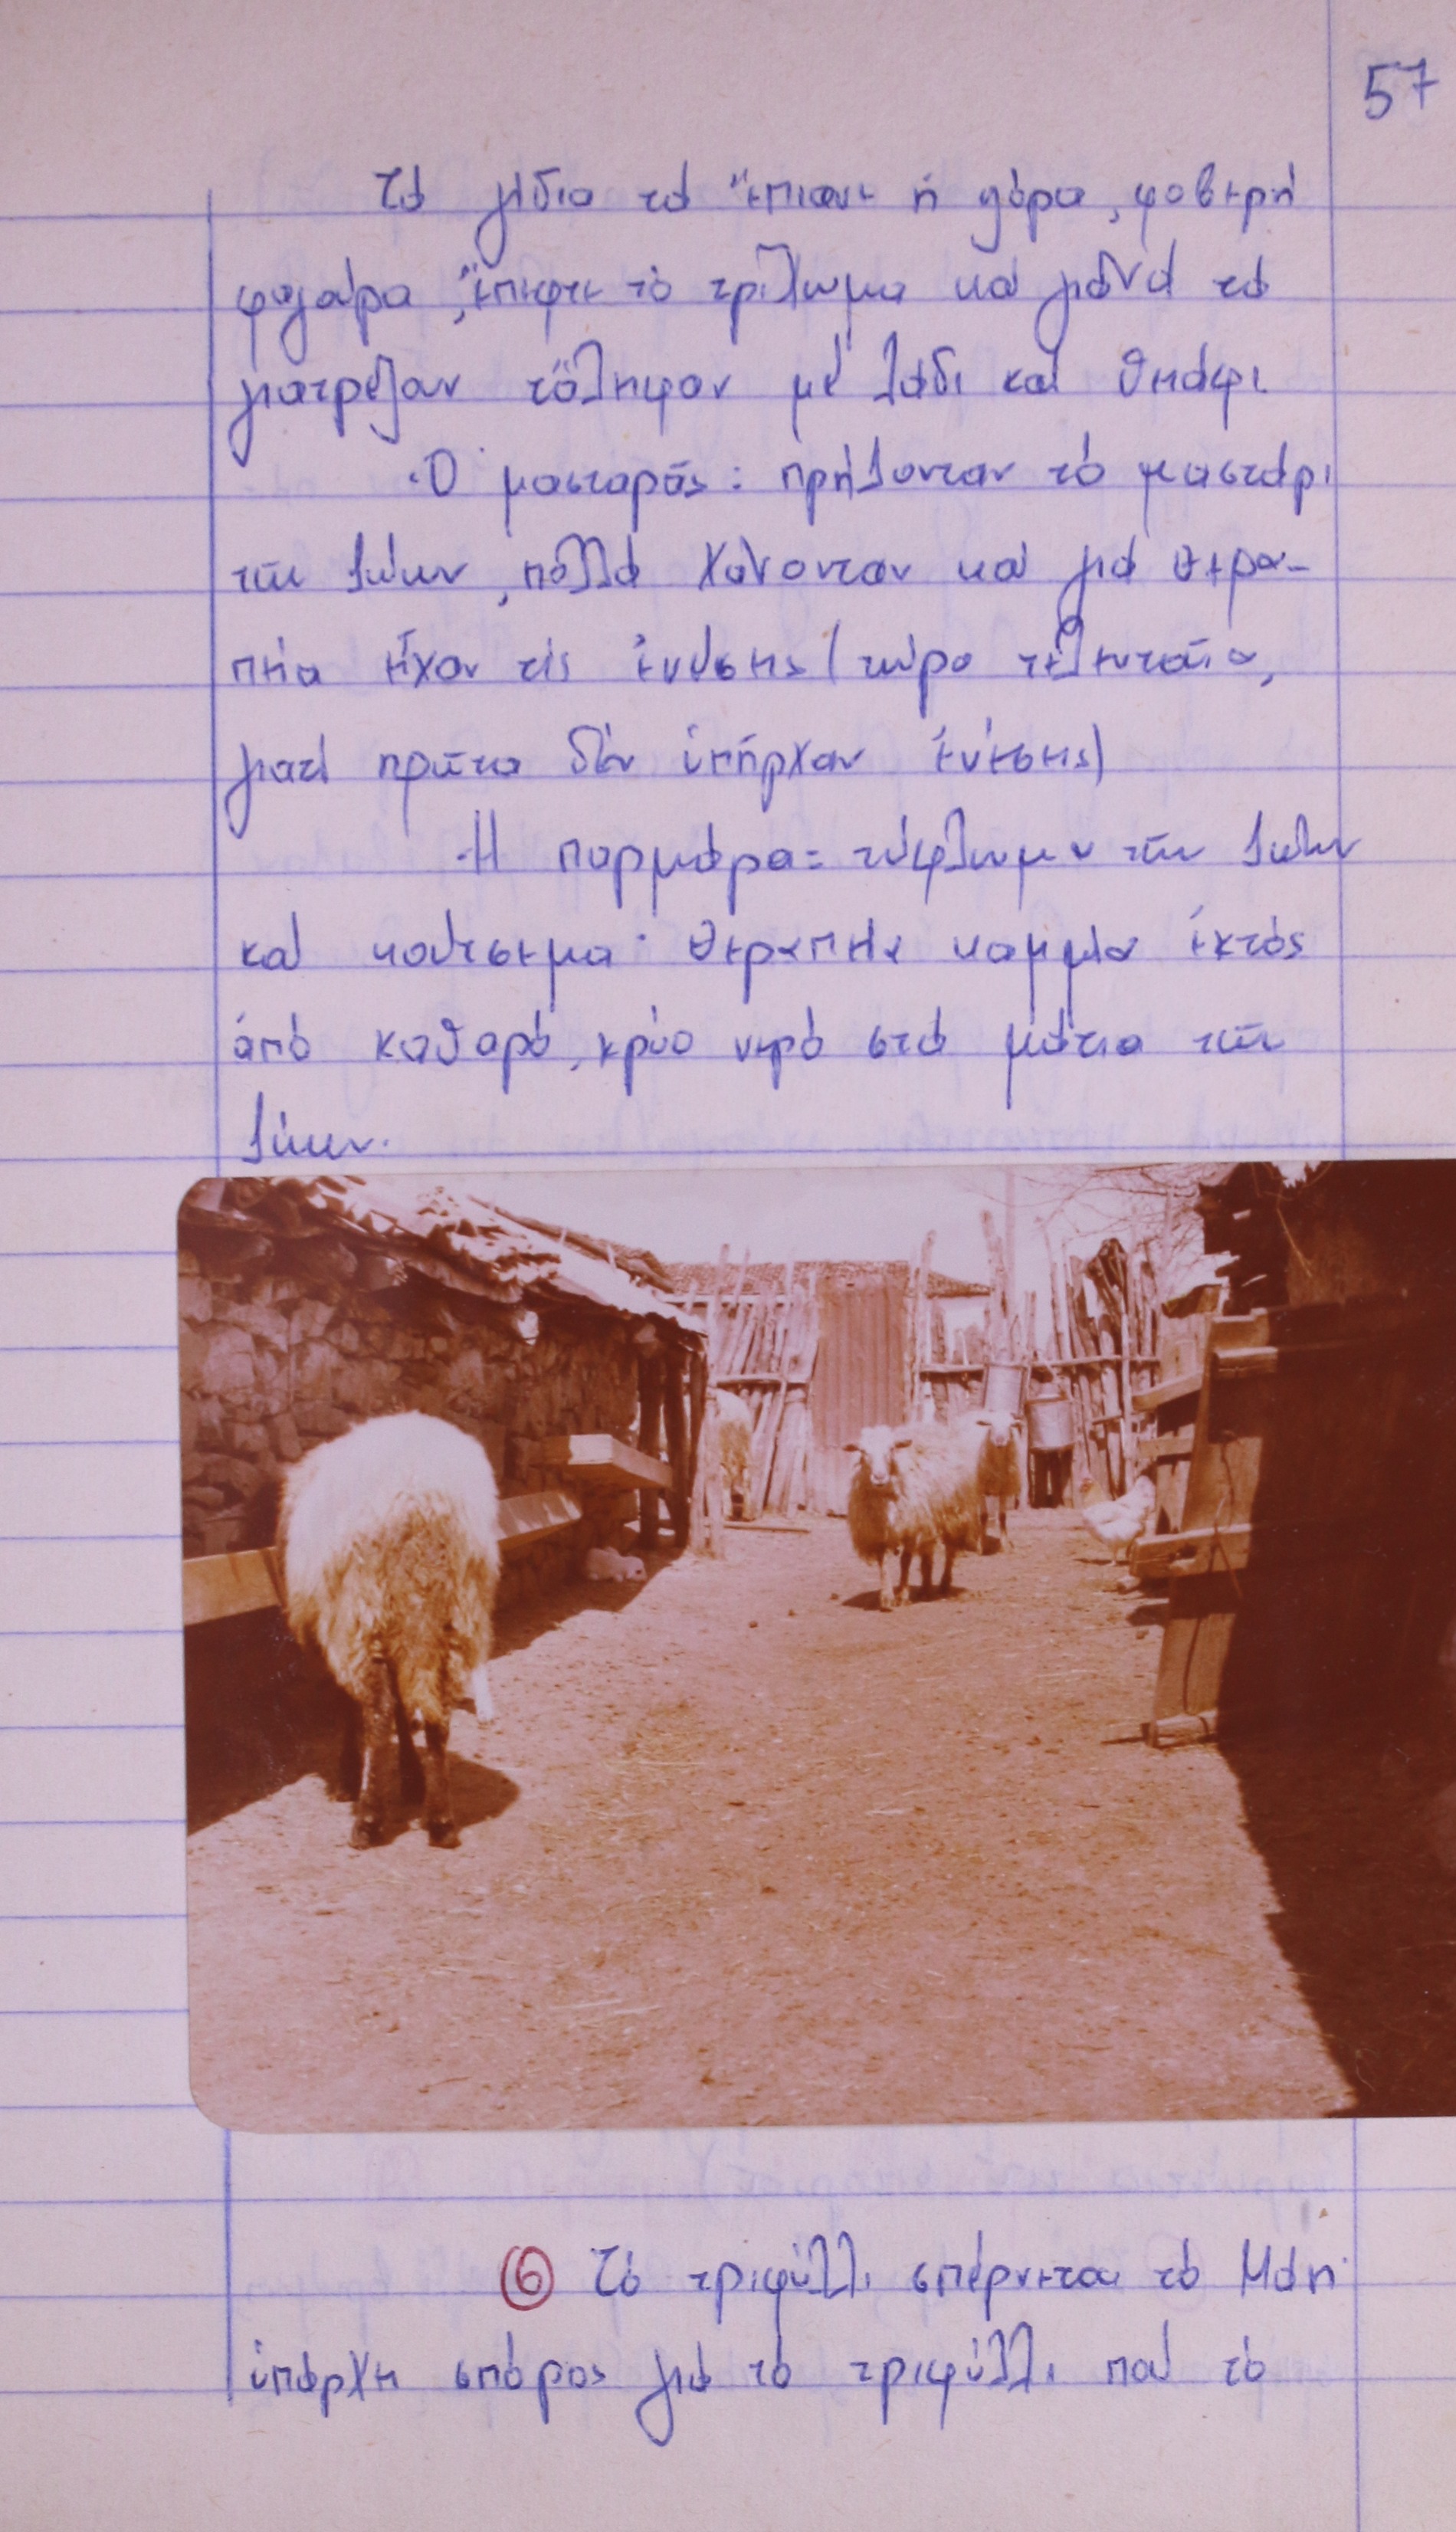 57
Τά γίδια τά ἔπιανε ἡ ψώρα, φοβερή
φαγούρα, ἔπεφτε τό τρίχωμα καί γιὰ νά τά
γιατρέψουν τἄλειφαν μέ λάδι καί θειάφι.
Ὁ μασταρᾶς: πρήζονταν τό μαστάρι
τῶν ζώων, πολλά χάνονταν καί γιά θερα-
πεία εἶχαν τίς ἐνέσεις (τώρα τελευταῖα,
γιατί πρῶτα δέν ὑπῆρχαν ἐνέσεις)
Ἡ παρμάρα= τύφλωμα τῶν ζώων
καί κούτσεμα· θεραπεία καμμία ἐκτός
ἀπό καθαρό, κρύο νερό στά μάτια τῶν
ζώων.
⑥ Τό τριφύλλι σπέρνεται τό Μάη·
ὑπάρχει σπόρος γιά τό τριφύλλι πού τό